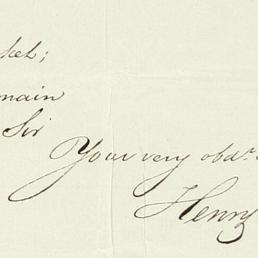 main
Sir
Your very obdt.
Henry